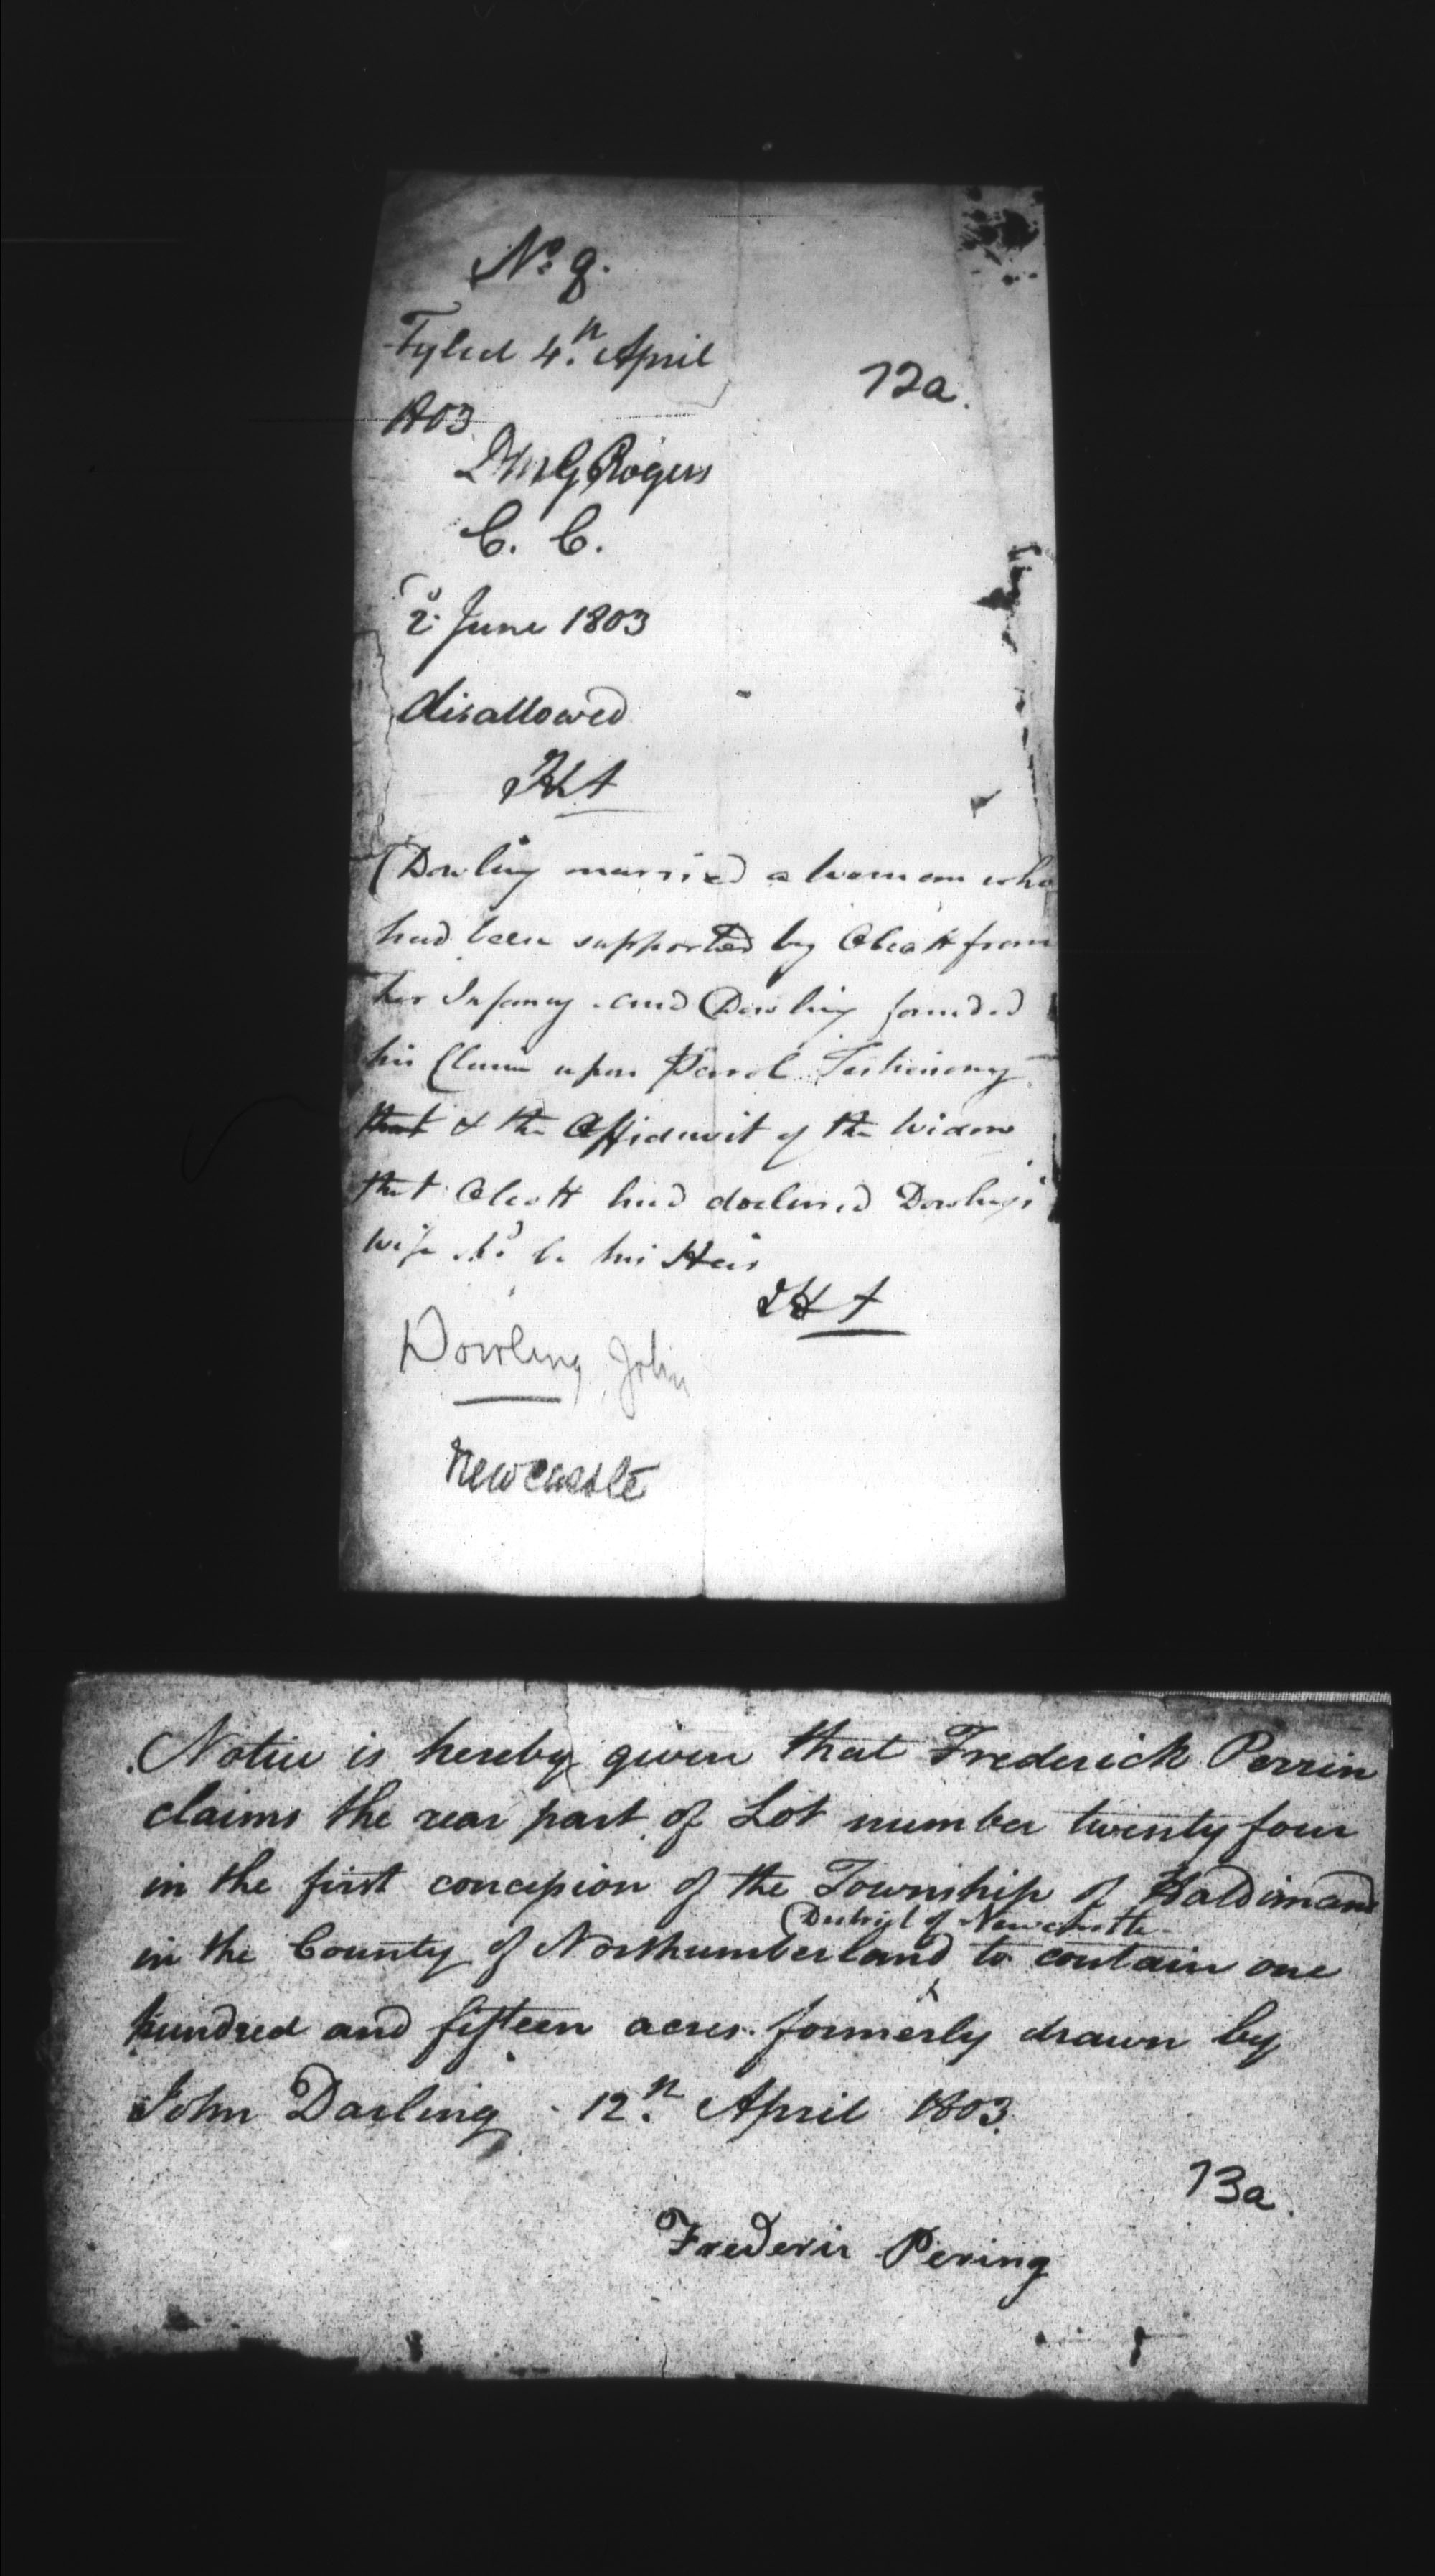 No. 9.
Fyled 4th. April
1803
72a.
D M G Rogers
C. C.
2d June 1803
disallowed
HA
Dowling married a woman who
had been supported by Alcott from
her Infancy - and Dowling founded
his Claim upon Parol Testimony
that & the Affidavit of the Widow
that Alcott had declared Dowling's
wife shd be his Heir
HA
Dowling, John
Newcastle
Notice is hereby given that Frederick Perrin
claims the rear part of Lot number twenty four
in the first concession of the Township of Haldimand
District of Newcastle
in the County of Northumberland to contain one
hundred and fifteen acres. formerly drawn by
John Darling - 12th. April 1803.
73a.
Frederic Pering